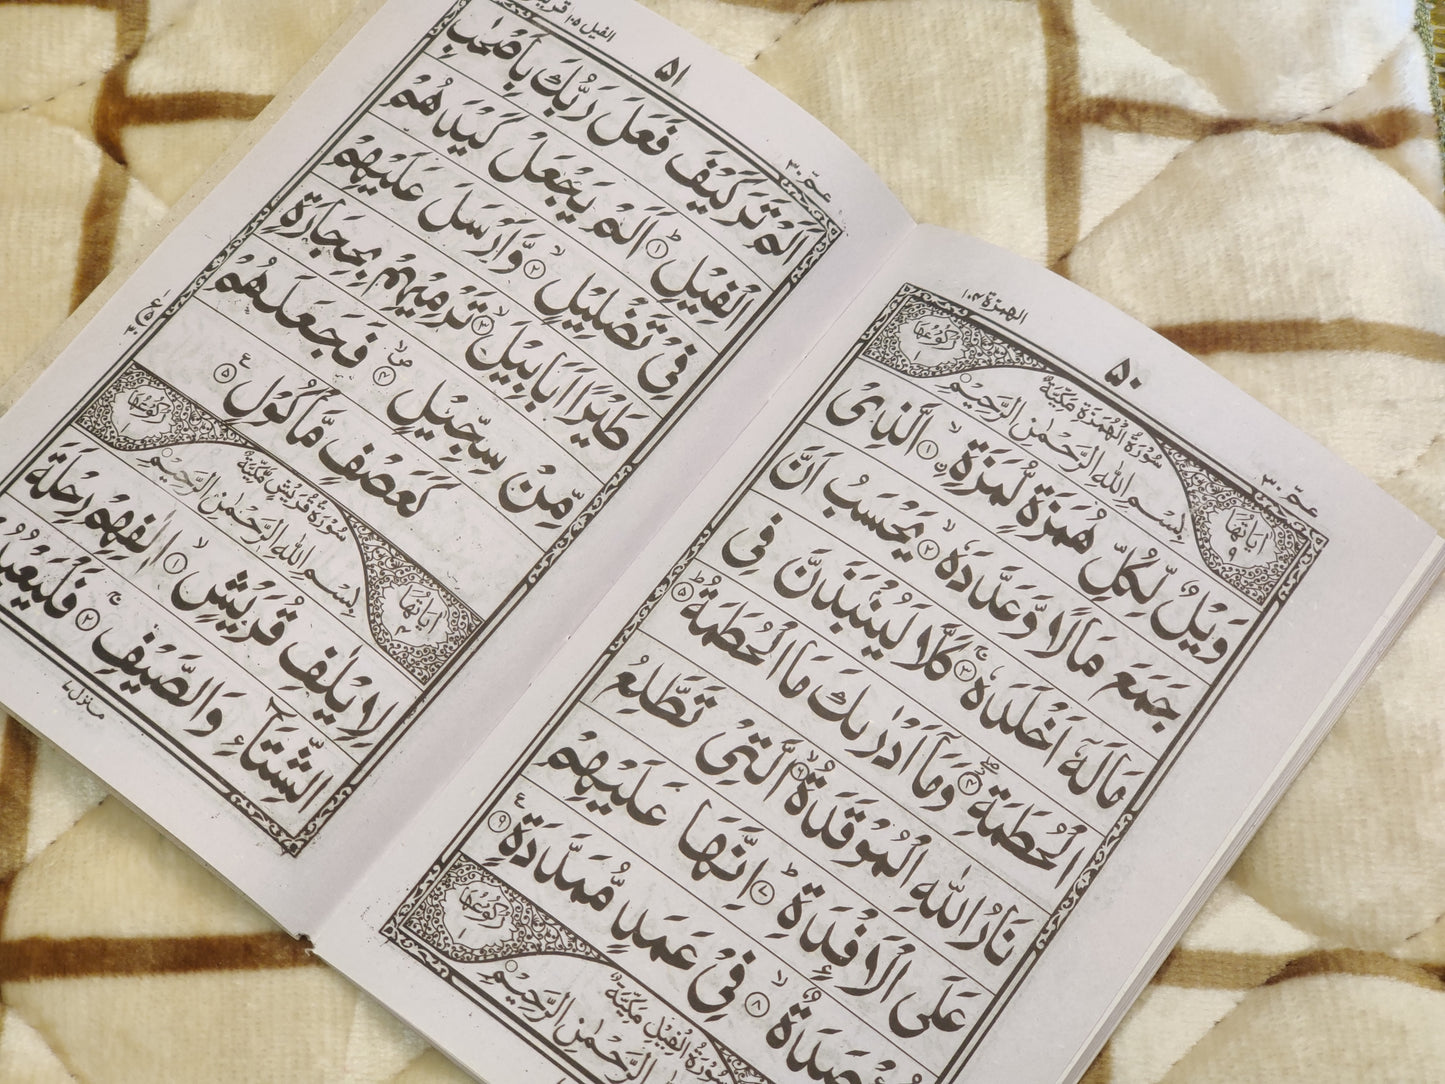 الهمزة ١٠٤
٥٠
عمّ ٣٠
رکوعها ١
سُوْرَةُ الْهُمَزَةِ مَكِّيَّةٌ
اٰيَاتُهَا ٩
بِسْمِ اللّٰهِ الرَّحْمٰنِ الرَّحِيْمِ
وَيْلٌ لِّكُلِّ هُمَزَةٍ لُّمَزَةِ ۙ﴿۱﴾ اۨلَّذِىْ
جَمَعَ مَالًا وَّعَدَّدَهٗ ۙ﴿۲﴾ يَحْسَبُ اَنَّ
مَالَهٗۤ اَخْلَدَهٗ ۚ﴿۳﴾ كَلَّا لَيُنْۢبَذَنَّ فِى
الْحُطَمَةِ ۖ﴿۴﴾ وَمَاۤ اَدْرٰىكَ مَا الْحُطَمَةُ ؕ﴿۵﴾
نَارُ اللّٰهِ الْمُوْقَدَةُ ۙ﴿۶﴾ الَّتِىْ تَطَّلِعُ
عَلَى الْاَفْـِٕدَةِ ؕ﴿۷﴾ اِنَّهَا عَلَيْهِمْ
مُّؤْصَدَةٌ ۙ﴿۸﴾ فِىْ عَمَدٍ مُّمَدَّدَةٍ ﴿۹﴾ ع
رکوعها ١
سُوْرَةُ الْفِيْلِ مَكِّيَّةٌ
الرَّحْمٰنِ الرَّحِيْمِ
الفيل ١٠٥
٥١
عمّ ٣٠
اَلَمْ تَرَ كَيْفَ فَعَلَ رَبُّكَ بِاَصْحٰبِ
الْفِيْلِ ؕ﴿۱﴾ اَلَمْ يَجْعَلْ كَيْدَهُمْ
فِىْ تَضْلِيْلٍ ۙ﴿۲﴾ وَّاَرْسَلَ عَلَيْهِمْ
طَيْرًا اَبَابِيْلَ ۙ﴿۳﴾ تَرْمِيْهِمْ بِحِجَارَةٍ
مِّنْ سِجِّيْلٍ ۪ۙ﴿۴﴾ فَجَعَلَهُمْ
كَعَصْفٍ مَّاْكُوْلٍ ﴿۵﴾ ع
رکوعها ١
سُوْرَةُ قُرَيْشٍ مَّكِّيَّةٌ
اٰيَاتُهَا ٤
بِسْمِ اللّٰهِ الرَّحْمٰنِ الرَّحِيْمِ
لِاِيْلٰفِ قُرَيْشٍ ۙ﴿۱﴾ اٖلٰفِهِمْ رِحْلَةَ
الشِّتَآءِ وَالصَّيْفِ ۚ﴿۲﴾ فَلْيَعْبُدُ
منزل ٧